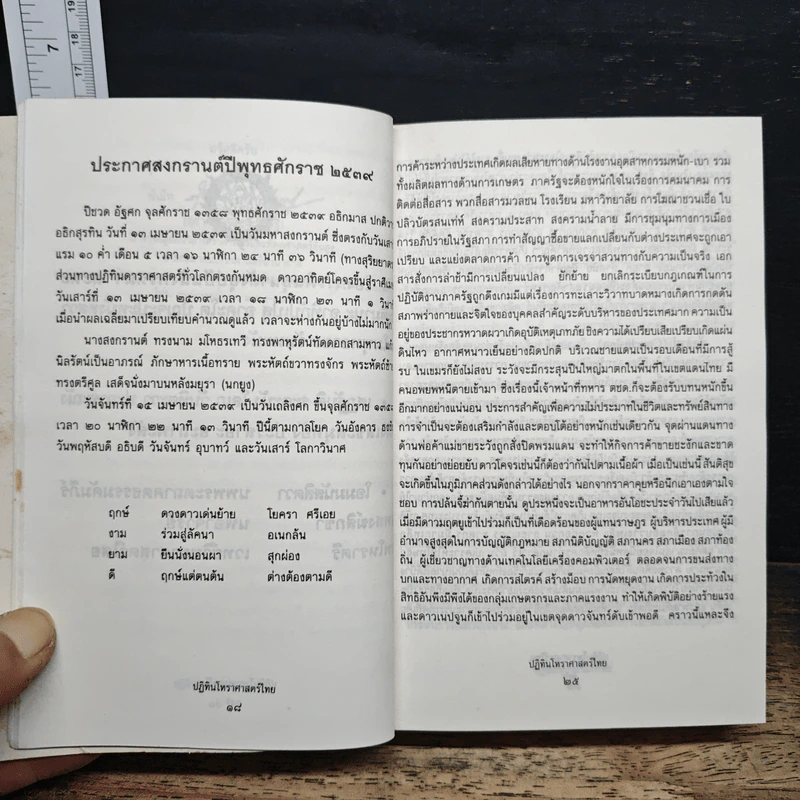 7
19
18
17
ประกาศสงกรานต์ปีพุทธศักราช ๒๕๓๙
ปีชวด อัฐศก จุลศักราช ๑๓๕๘ พุทธศักราช ๒๕๓๙ อธิกมาส ปกติวา
อธิกสุรทิน วันที่ ๑๓ เมษายน ๒๕๓๙ เป็นวันมหาสงกรานต์ ซึ่งตรงกับวันเส
แรม ๑๐ ค่ำ เดือน ๕ เวลา ๑๖ นาฬิกา ๒๔ นาที ๓๖ วินาที (ทางสุริยยาต
ส่วนทางปฏิทินดาราศาสตร์ทั่วโลกตรงกันหมด ดาวอาทิตย์โคจรขึ้นสู่ราศีเม
วันเสาร์ที่ ๑๓ เมษายน ๒๕๓๙ เวลา ๑๘ นาฬิกา ๒๓ นาที ๑ วินา
เมื่อนำผลเฉลี่ยมาเปรียบเทียบคำนวณดูแล้ว เวลาจะห่างกันอยู่บ้างไม่มากนัก
นางสงกรานต์ ทรงนาม มโหธรเทวี ทรงพาหุรัตน์ทัดดอกสามหาว แก้
นิลรัตน์เป็นอาภรณ์ ภักษาหารเนื้อทราย พระหัตถ์ขวาทรงจักร พระหัตถ์ซ้
ทรงตรีศูล เสด็จนั่งมาบนหลังมยุรา (นกยูง)
วันจันทร์ที่ ๑๕ เมษายน ๒๕๓๙ เป็นวันเถลิงศก ขึ้นจุลศักราช ๑๓๕๘
เวลา ๒๐ นาฬิกา ๒๒ นาที ๑๓ วินาที ปีนี้ตามกาลโยค วันอังคาร ธงชั
วันพฤหัสบดี อธิบดี วันจันทร์ อุบาทว์ และวันเสาร์ โลกาวินาศ
ฤกษ์ ดวงดาวเด่นย้าย โยครา ศรีเอย
งาม ร่วมสู่ลัคนา อเนกล้น
ยาม ยืนนั่งนอนผา สุกผ่อง
ดี ฤกษ์แต่ตนต้น ต่างต้องตามดี
ปฏิทินโหราศาสตร์ไทย
๑๘
การค้าระหว่างประเทศเกิดผลเสียหายทางด้านโรงงานอุตสาหกรรมหนัก-เบา รวม
ทั้งผลิตผลทางด้านการเกษตร ภาครัฐจะต้องหนักใจในเรื่องการคมนาคม การ
ติดต่อสื่อสาร พวกสื่อสารมวลชน โรงเรียน มหาวิทยาลัย การโฆษณาชวนเชื่อ ใบ
ปลิวบัตรสนเท่ห์ สงครามประสาท สงครามน้ำลาย มีการชุมนุมทางการเมือง
การอภิปรายในรัฐสภา การทำสัญญาซื้อขายแลกเปลี่ยนกับต่างประเทศจะถูกเอา
เปรียบ และแย่งตลาดการค้า การพูดการเจรจาสวนทางกับความเป็นจริง เอก
สารสั่งการล่าช้ามีการเปลี่ยนแปลง ยักย้าย ยกเลิกระเบียบกฎเกณฑ์ในการ
ปฏิบัติงานภาครัฐถูกดึงเกมมีแต่เรื่องการทะเลาะวิวาทบาดหมางเกิดการกดดัน
สภาพร่างกายและจิตใจของบุคคลสำคัญระดับบริหารของประเทศมาก ความเป็น
อยู่ของประชากรหวาดผวาเกิดอุบัติเหตุเภทภัย ชิงความได้เปรียบเสียเปรียบเกิดแผ่น
ดินไหว อากาศหนาวเย็นอย่างผิดปกติ บริเวณชายแดนเป็นรอบเดือนที่มีการสู้
รบ ในเขมรก็ยังไม่สงบ ระวังจะมีกระสุนปืนใหญ่มาตกในพื้นที่ในเขตแดนไทย มี
คนอพยพหนีตายเข้ามา ซึ่งเรื่องนี้เจ้าหน้าที่ทหาร ตชด.ก็จะต้องรับบทหนักขึ้น
อีกมากอย่างแน่นอน ประการสำคัญเพื่อความไม่ประมาทในชีวิตและทรัพย์สินทาง
การจำเป็นจะต้องเสริมกำลังและตอบโต้อย่างหนักเช่นเดียวกัน จุดผ่านแดนทาง
ด้านพ่อค้าแม่ขายระวังถูกสั่งปิดพรมแดน จะทำให้กิจการค้าขายชะงักและขาด
ทุนกันอย่างย่อยยับ ดาวโคจรเช่นนี้ก็ต้องว่ากันไปตามเนื้อผ้า เมื่อเป็นเช่นนี้ สันติสุข
จะเกิดขึ้นในภูมิภาคส่วนดังกล่าวได้อย่างไร นอกจากราคาคุยหรือนึกเอาเองตามใจ
ชอบ การปล้นจี้ฆ่ากันตายนั้น ดูประหนึ่งจะเป็นอาหารอันโอชะประจำวันไปเสียแล้ว
เมื่อมีดาวมฤตยูเข้าไปร่วมก็เป็นที่เดือดร้อนของผู้แทนราษฎร ผู้บริหารประเทศ ผู้มี
อำนาจสูงสุดในการบัญญัติกฎหมาย สภานิติบัญญัติ สภานคร สภาเมือง สภาท้อง
ถิ่น ผู้เชี่ยวชาญทางด้านเทคโนโลยีเครื่องคอมพิวเตอร์ ตลอดจนการขนส่งทาง
บกและทางอากาศ เกิดการสไตรค์ สร้างม็อบ การนัดหยุดงาน เกิดการประท้วงใน
สิทธิอันพึงมีพึงได้ของกลุ่มเกษตรกรและภาคแรงงาน ทำให้เกิดพิบัติอย่างร้ายแรง
และดาวเนปจูนก็เข้าไปร่วมอยู่ในเขตจุดดาวจันทร์ดับเข้าพอดี คราวนี้แหละจึง
ปฏิทินโหราศาสตร์ไทย
๒๕